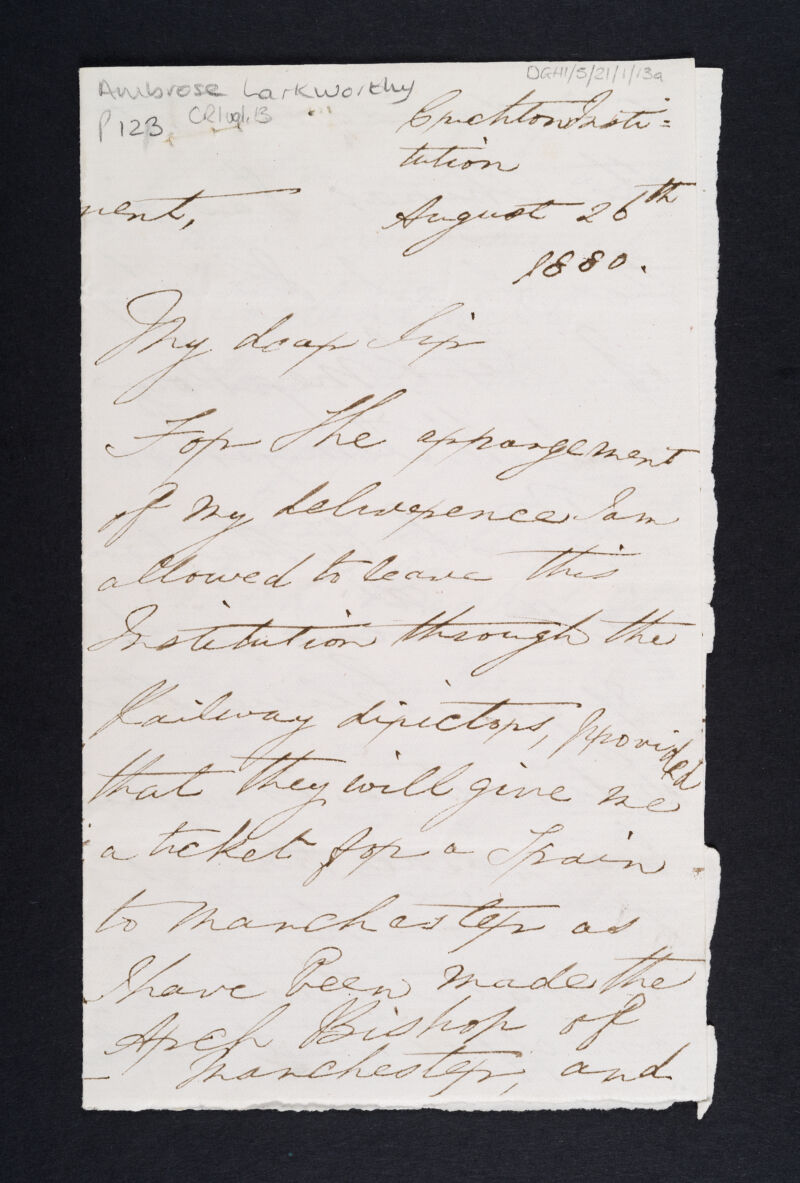 Ambrose Larkworthy
DGH1/5/21/1/13a
P123
Crichton Insti=
tution
nent,
August 26th
1880.
My dear Sir
For The arrangement
of my deliverence I am
allowed to leave this
Institution through the
Railway directors, provided
that they will give me
a ticket for a Train
to Manchester as
I have been made the
Arch Bishop of
Manchester, and